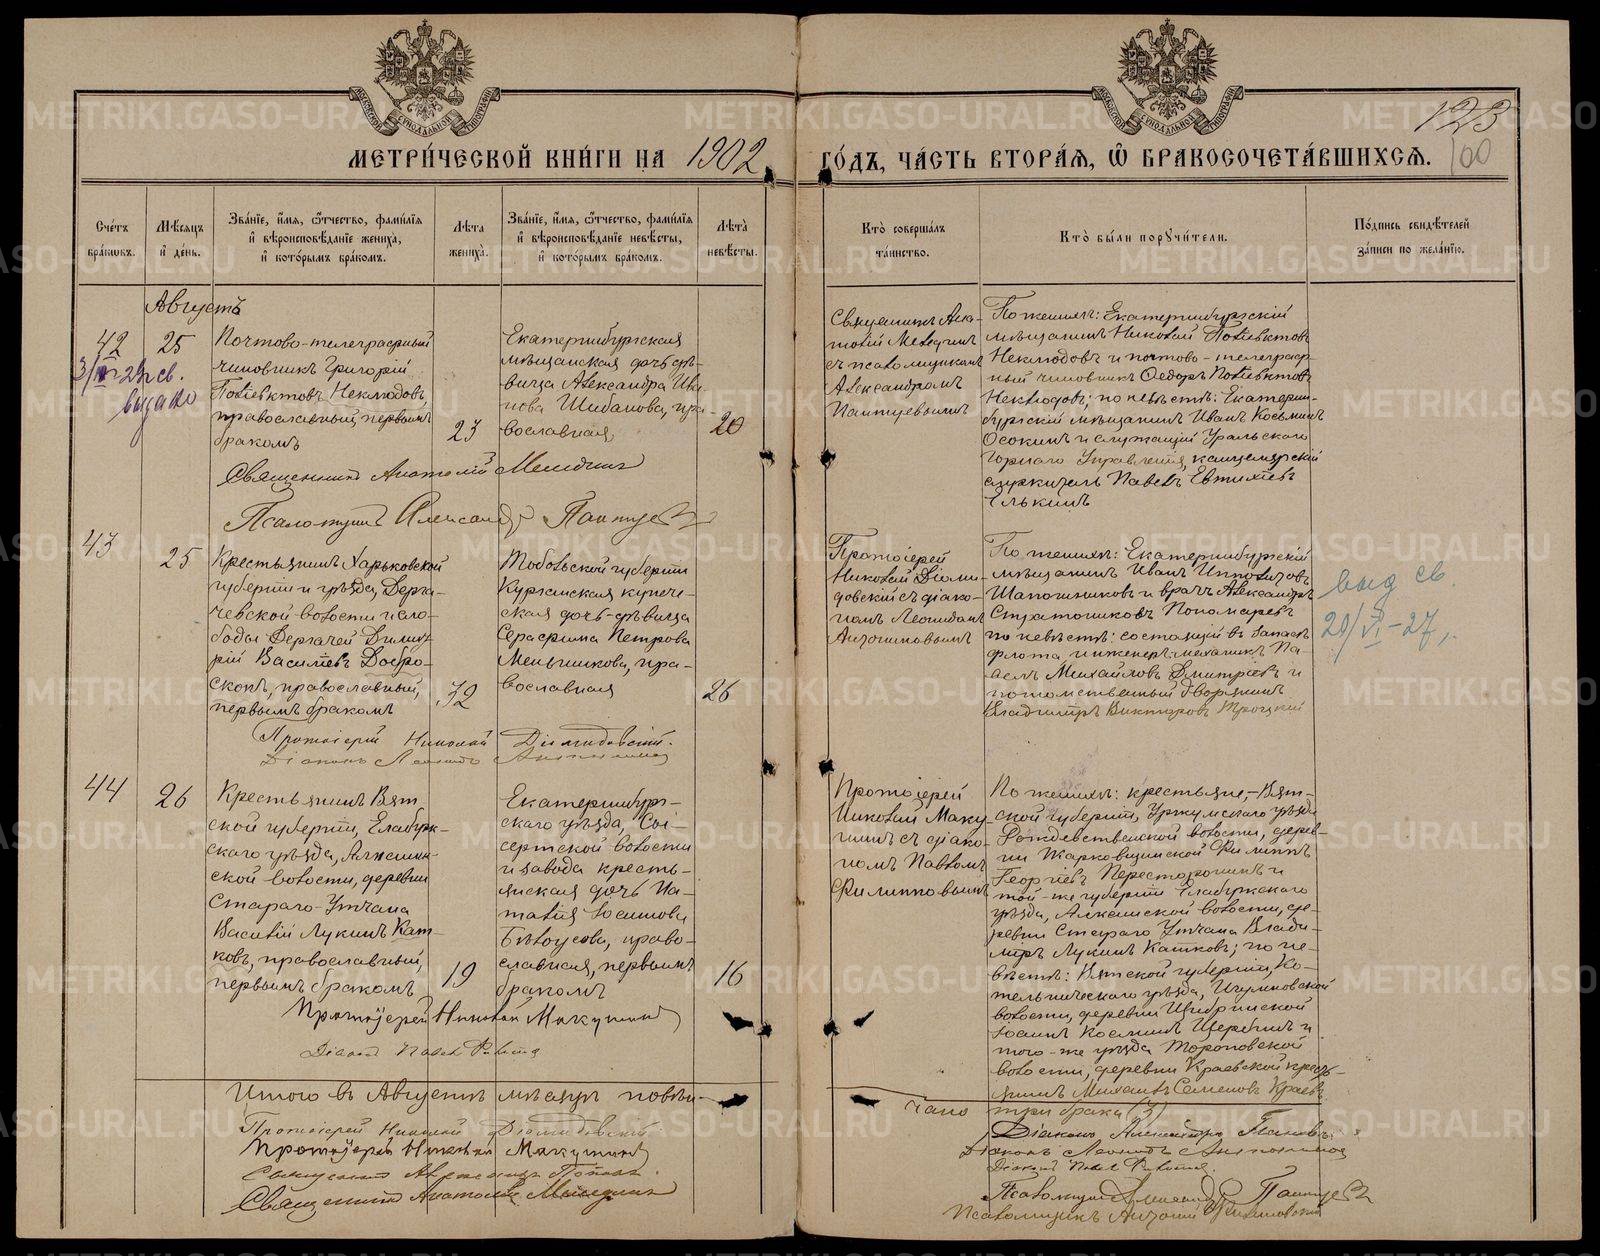 МЕТРИ́ЧЕСКОЙ КНИ́ГИ НА 1902
ГО́ДЪ, ЧА́СТЬ ВТОРА́Я, Ѽ БРАКОСОЧЕТА́ВШИХСЯ.
123
100
Сче́тъ бра́кѡвъ.
Мѣ́сяцъ и҆ де́нь.
Зва́нїе, и҆́мя, ѻ҆́тчество, фами́лїя и҆ вѣроисповѣ́данїе жениха̀, и҆ кото́рымъ бра́комъ.
Лѣ́та жениха̀.
Зва́нїе, и҆́мя, ѻ҆́тчество, фами́лїя и҆ вѣроисповѣ́данїе невѣ́сты, и҆ кото́рымъ бра́комъ.
Лѣ́та невѣ́сты.
Кто̀ соверша́лъ та́инство.
Кто̀ бы́ли поручи́тели.
По́дпись свидѣ́телей за́писи по жела́нїю.
Августъ
42
25
Почтово-телеграфный
чиновникъ Григорій
Поліевктовъ Неклюдовъ,
православный, первымъ
бракомъ
23
Екатеринбургская
мѣщанская дочь дѣ-
вица Александра Ива-
нова Шибанова, пра-
вославная,
20
Священникъ Ана-
толій Мелединъ
съ псаломщикомъ
Александромъ
Пантуевымъ
По женихѣ: Екатеринбургскій
мѣщанинъ Николай Поліевктовъ
Неклюдовъ и почтово-телеграф-
ный чиновникъ Ѳедоръ Поліевктовъ
Неклюдовъ; по невѣстѣ: Екатерин-
бургскій мѣщанинъ Иванъ Косьминъ
Осокинъ и служащій Уральскаго
Горнаго Управленія, канцелярскій
служитель Павелъ Евтихіевъ
Елькинъ
выдано
Священникъ Анатолій Мелединъ
Псаломщикъ Александръ Пантуевъ
43
25
Крестьянинъ Харьковской
губерніи и уѣзда, Дерга-
чевской волости и сло-
боды Дергачей Дмит-
рій Василіевъ Добро-
скокъ, православный,
первымъ бракомъ
32
Тобольской губерніи
Курганская купече-
ская дочь-дѣвица
Серафима Петрова
Меньшикова, пра-
вославная
26
Протоіерей
Николай Діоми-
довскій съ діако-
номъ Леонидомъ
Антониновымъ
По женихѣ: Екатеринбургскій
мѣщанинъ Иванъ Ипполитовъ
Шапошниковъ и врачъ Александръ
Стратониковъ Пономаревъ
по невѣстѣ: состоящій въ запасѣ
флота инженеръ-механикъ Па-
велъ Михайловъ Дмитріевъ и
потомственный дворянинъ
Владиміръ Викторовъ Троцкій
выд св.
20/VI-27
Протоіерей Николай Діомидовскій.
Діаконъ Леонидъ Антониновъ
44
26
Крестьянинъ Вят-
ской губерніи, Елабуж-
скаго уѣзда,
ской волости, деревни
Стараго-Утчана
Василій Лукинъ Кат-
ковъ, православный,
первымъ бракомъ
19
Екатеринбург-
скаго уѣзда, Сы-
сертской волости
и завода кресть-
янская дочь На-
талія
Бѣлоусова, право-
славная, первымъ
бракомъ
16
Протоіерей
Николай Маку-
шинъ съ діако-
номъ Павломъ
Филипповымъ
По женихѣ: крестьяне,-Вят-
ской губерніи, Уржумскаго уѣзда
Рождественской волости, дерев-
ни Жарковщинской Филиппъ
Георгіевъ Пересторонинъ и
той-же губерніи Елабужскаго
уѣзда, волости, де-
ревни Стараго Утчана Влади-
міръ Лукинъ Катковъ; по не-
вѣстѣ: Вятской губерніи, Ко-
тельническаго уѣзда,
волости, деревни
Косминъ Щербинъ и
того-же уѣзда Тороповской
волости, деревни Краевской кресть-
янинъ Михаилъ Семеновъ Краевъ
Протоіерей Николай Макушинъ
Діаконъ Павелъ Филиппов
Итого въ Августѣ мѣсяцѣ повѣн-
чано три брака (3)
Протоіерей Николай Діомидовскій
Протоіерей Николай Макушинъ
Священникъ Поповъ
Священникъ Анатолій Мелединъ
Діаконъ Александръ
Діаконъ Леонидъ Антониновъ
Діаконъ Павелъ Филиппов
Псаломщикъ Александръ Пантуевъ
Псаломщикъ
METRIKI.GASO-URAL.RU